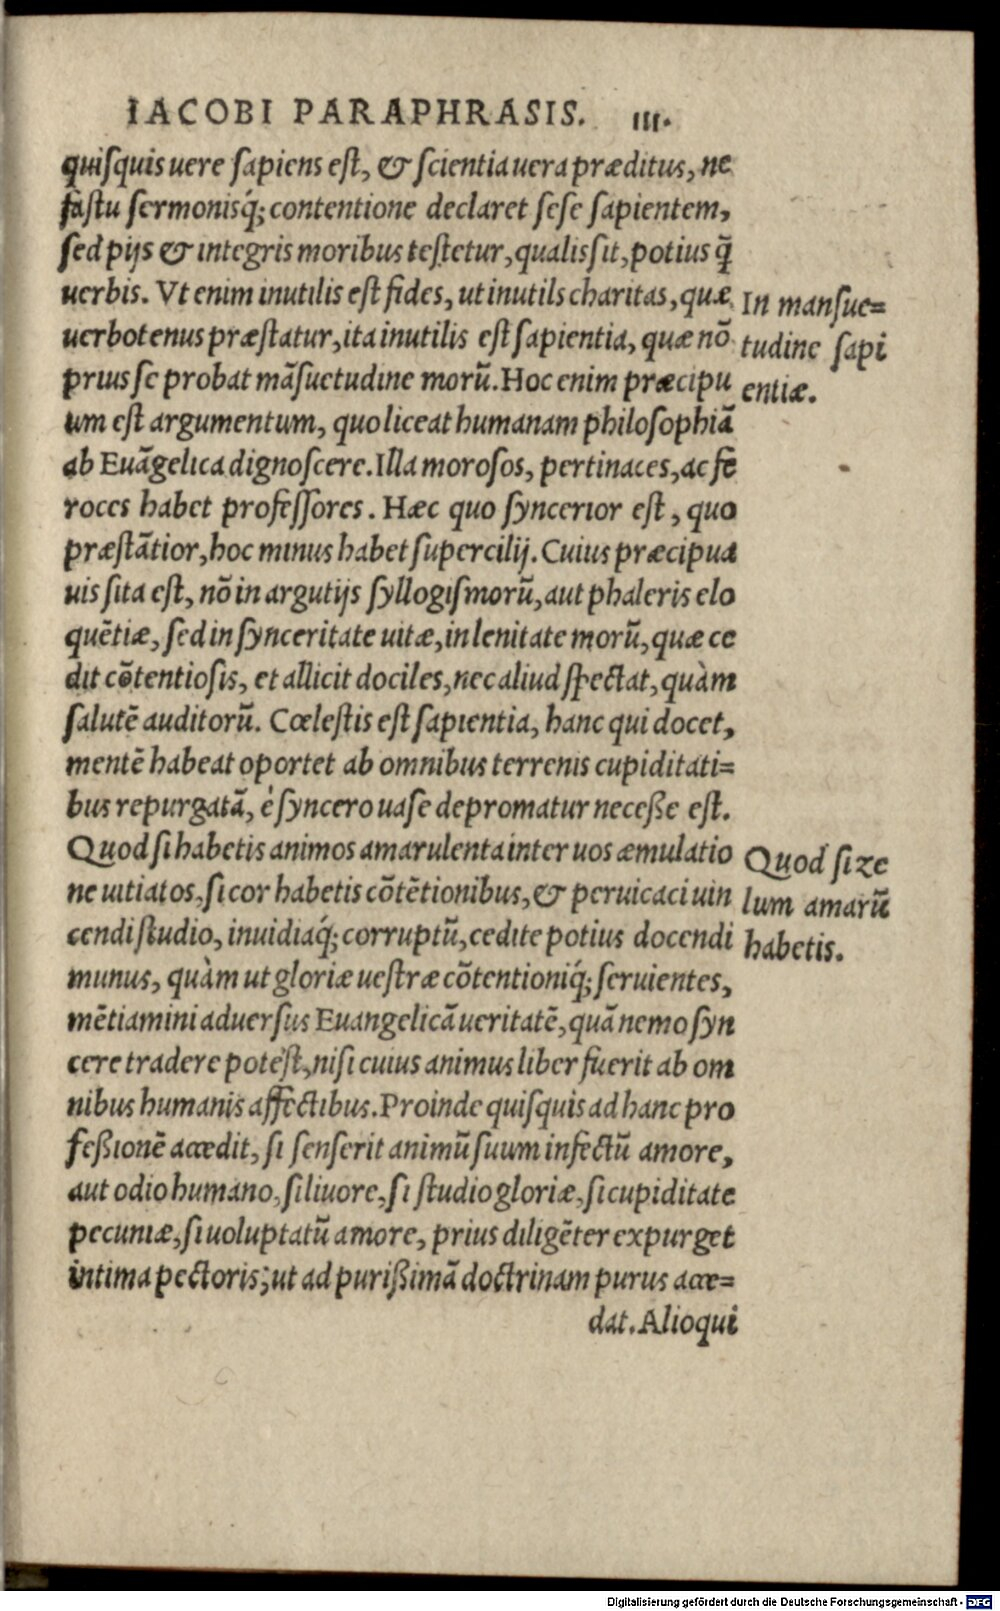 IACOBI PARAPHRASIS. III.
quiſquis uere ſapiens eſt, & ſcientia uera præditus, ne
faſtu ſermonisq́; contentione declaret ſeſe ſapientem,
ſed pijs & integris moribus teſtetur, qualis ſit, potius q̃
uerbis. Vt enim inutilis eſt fides, ut inutils charitas, quæ
uerbotenus præſtatur, ita inutilis eſt ſapientia, quæ nō
prius ſe probat mãſuetudine morũ. Hoc enim præcipu
um eſt argumentum, quo liceat humanam philoſophiã
ab Euãgelica dignoſcere. Illa moroſos, pertinaces, ac fe
roces habet profeſſores. Hæc quo ſyncerior eſt, quo
præſtãtior, hoc minus habet ſupercilij. Cuius præcipua
uis ſita eſt, nō in argutijs ſyllogiſmorũ, aut phaleris elo
quẽtiæ, ſed in ſynceritate uitæ, in lenitate morũ, quæ ce
dit cõtentioſis, et allicit dociles, nec aliud ſpectat, quàm
ſalutẽ auditorũ. Cœleſtis eſt ſapientia, hanc qui docet,
mentẽ habeat oportet ab omnibus terrenis cupiditati=
bus repurgatã, è ſyncero uaſe depromatur neceße eſt.
Quod ſi habetis animos amarulenta inter uos æmulatio
ne uitiatos, ſi cor habetis cõtẽtionibus, & peruicaci uin
cendi ſtudio, inuidiaq́; corruptũ, cedite potius docendi
munus, quàm ut gloriæ ueſtræ cõtentioniq́; ſeruientes,
mẽtiamini aduerſus Euangelicã ueritatẽ, quã nemo ſyn
cere tradere poteſt, niſi cuius animus liber fuerit ab om
nibus humanis affectibus. Proinde quiſquis ad hanc pro
feßionẽ accedit, ſi ſenſerit animũ ſuum infectũ amore,
aut odio humano, ſi liuore, ſi ſtudio gloriæ, ſi cupiditate
pecuniæ, ſi uoluptatũ amore, prius diligẽter expurget
intima pectoris; ut ad purißimã doctrinam purus acce=
dat. Alioqui
In manſue=
tudine ſapi
entiæ.
Quod ſi ze
lum amarũ
habetis.
Digitalisierung gefördert durch die Deutsche Forschungsgemeinschaft - DFG